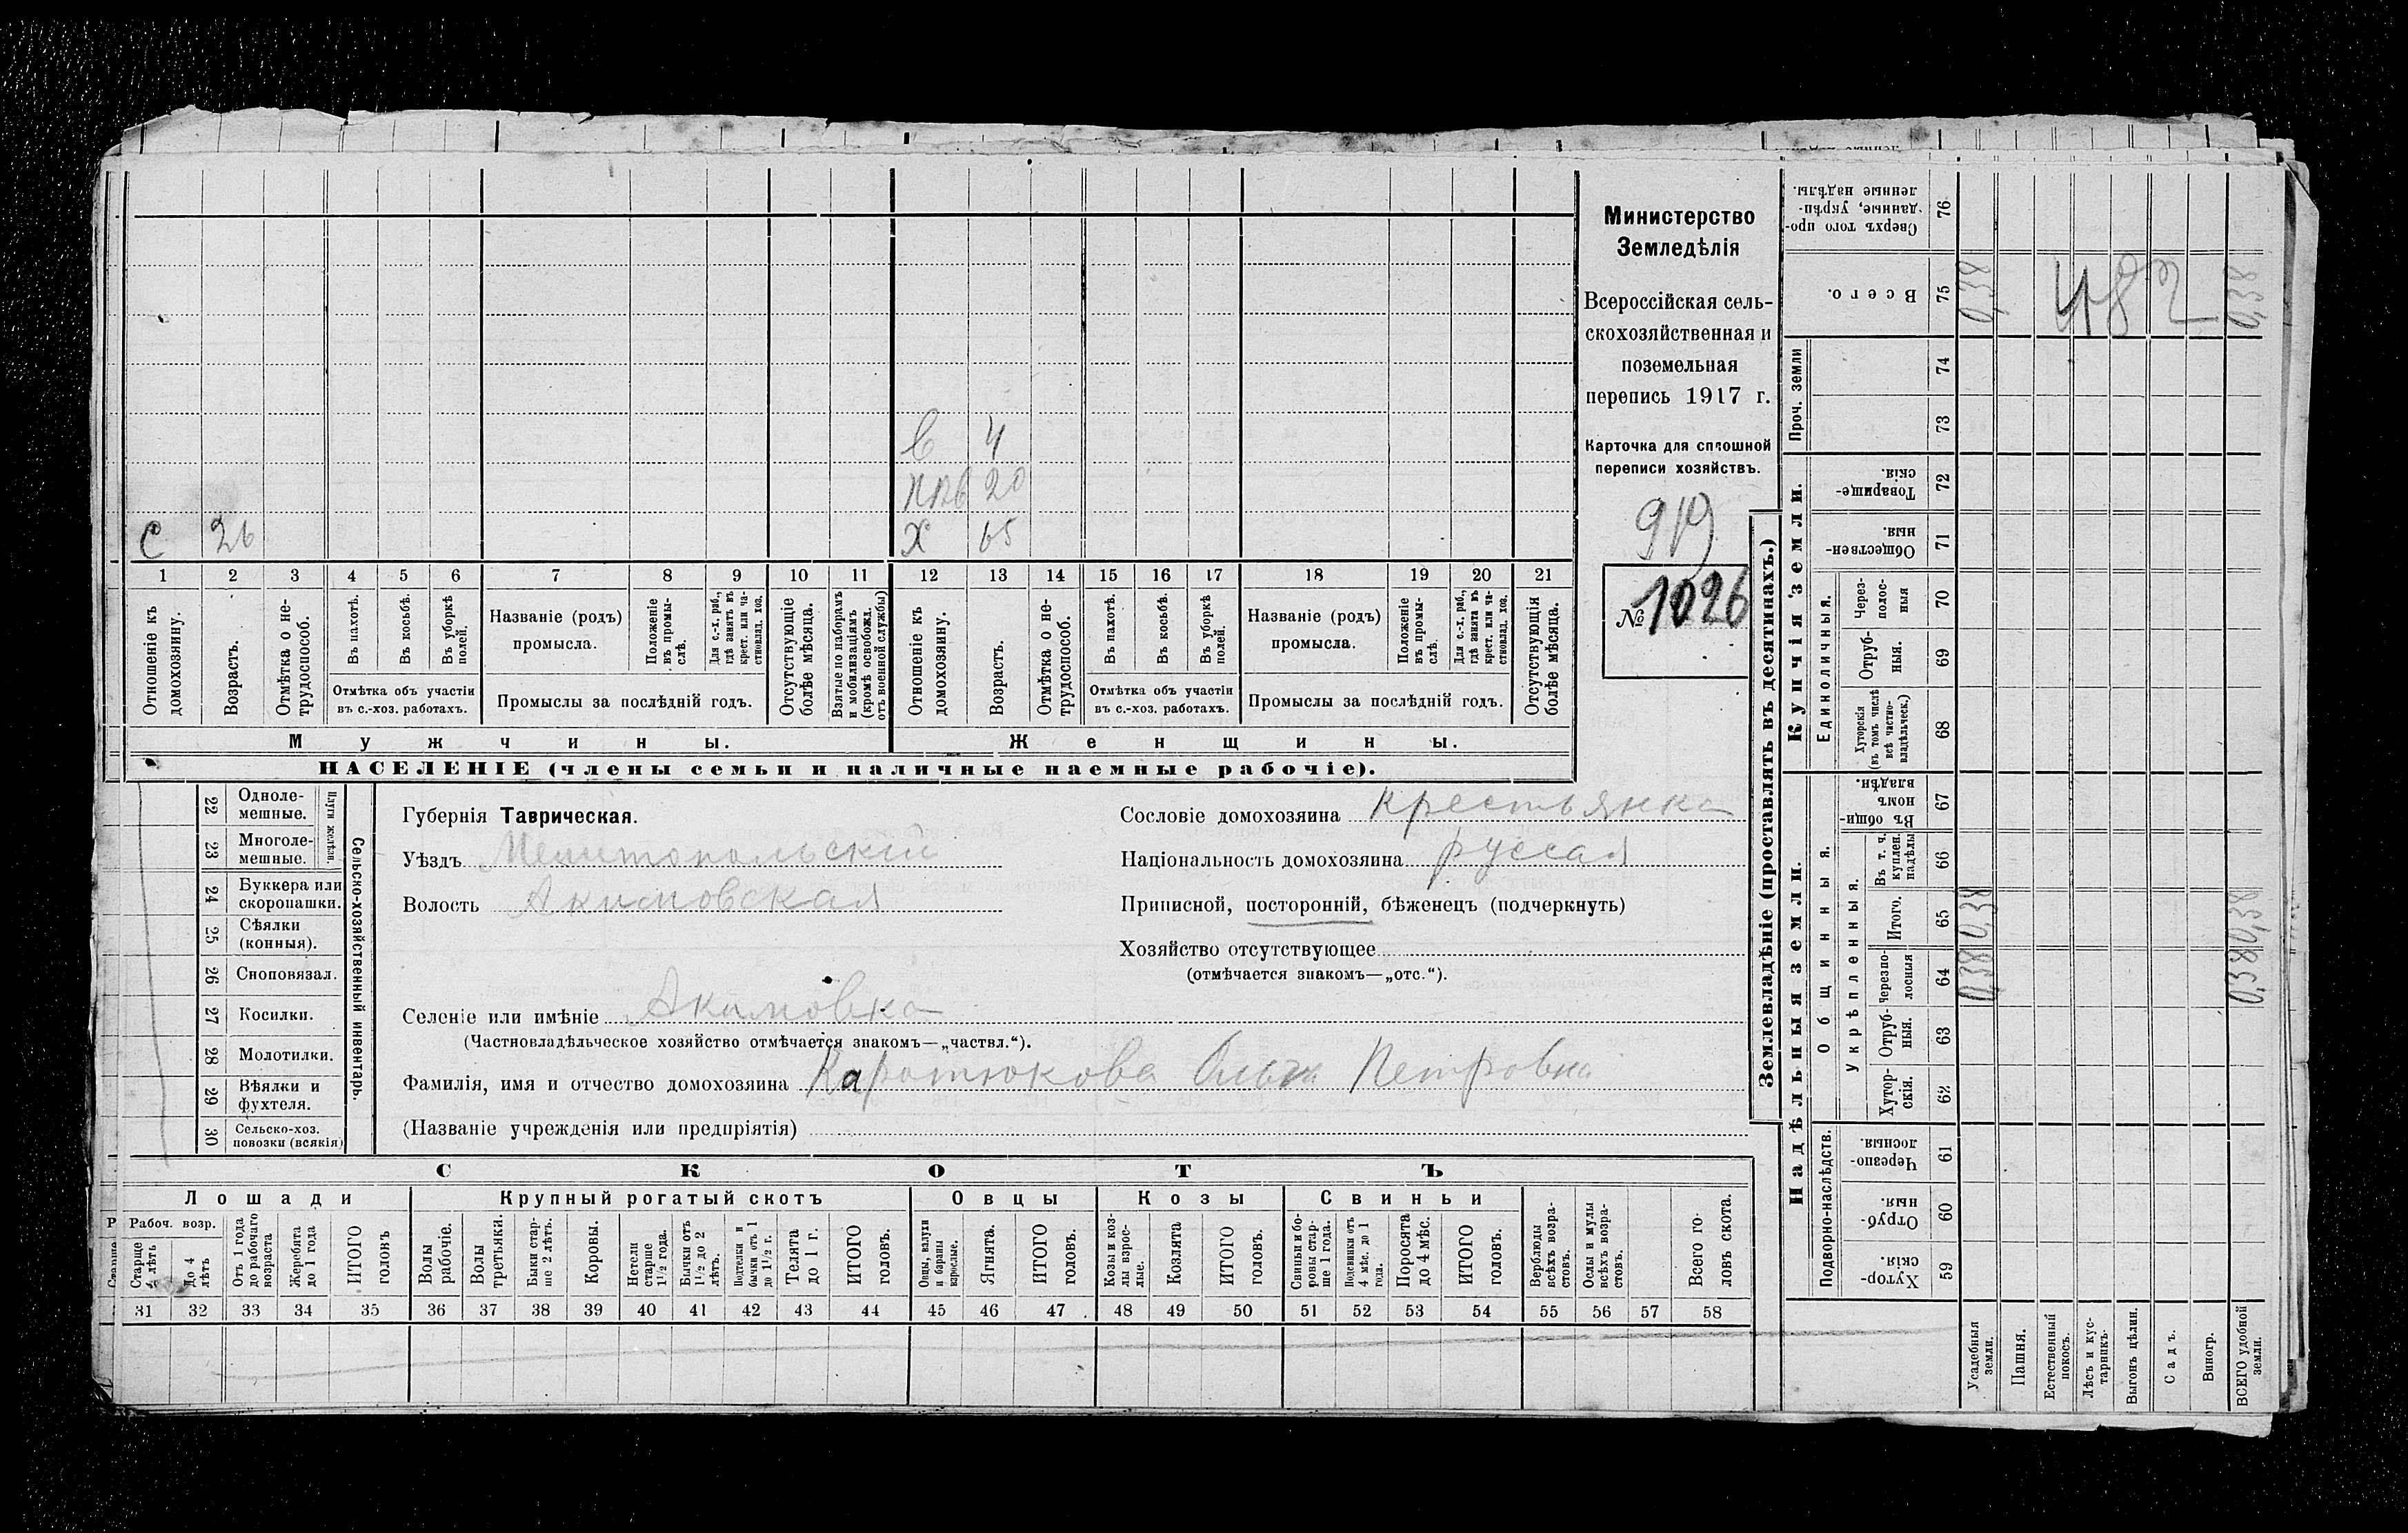 Министерство
Земледѣлія
Всероссійская сель-
скохозяйственная и
поземельная
перепись 1917 г.
Карточка для сплошной
переписи хозяйствъ.
919
№ 1026
в 4
ппв 20
С 26
Х 65
1 2 3 4 5 6 7 8 9 10 11 12 13 14 15 16 17 18 19 20 21
Отношеніе къ домохозяину.
Возрастъ.
Отмѣтка о нетрудоспособ.
Въ пахотѣ.
Въ косьбѣ.
Въ уборкѣ полей.
Отмѣтка объ участіи
въ с.-хоз. работахъ.
Названіе (родъ)
промысла.
Положеніе въ промыслѣ.
Для с.-х, раб., гдѣ занятъ въ крест. или частновлад. хоз.
Промыслы за послѣдній годъ.
Отсутствующіе болѣе мѣсяца.
Взятые по наборамъ и мобилизаціямъ (кромѣ освобожд. отъ военной службы)
Отношеніе къ домохозяину.
Возрастъ.
Отмѣтка о нетрудоспособ.
Въ пахотѣ.
Въ косьбѣ.
Въ уборкѣ полей.
Отмѣтка объ участіи
въ с.-хоз. работахъ.
Названіе (родъ)
промысла.
Положеніе въ промыслѣ.
Для с.-х, раб., гдѣ занята въ крест. или частновлад. хоз.
Промыслы за послѣдній годъ.
Отсутствующія болѣе мѣсяца.
Мужчины.
Женщины.
НАСЕЛЕНІЕ (члены семьи и наличные наемные рабочіе).
22 Одноле-
мешные.
23 Многоле-
мешные.
Плуги желѣзн.
24 Буккера или
скоропашки.
25 Сѣялки
(конныя).
26 Сноповязал.
27 Косилки.
28 Молотилки.
29 Вѣялки и
фухтеля.
30 Сельско-хоз.
повозки (всякія)
Сельско-хозяйственный инвентарь.
Губернія Таврическая.
Уѣздъ Мелитопольскій
Волость Акимовская
Селеніе или имѣніе Акимовка
(Частновладѣльческое хозяйство отмѣчается знакомъ—„частвл.“).
Фамилія, имя и отчество домохозяина Каротюкова Ольга Петровна
(Названіе учрежденія или предпріятія)
Сословіе домохозяина крестьянка
Національность домохозяина руссая
Приписной, посторонній, бѣженецъ (подчеркнуть)
Хозяйство отсутствующее
(отмѣчается знакомъ—„отс.“).
СКОТЪ
Лошади
Крупный рогатый скотъ
Овцы
Козы
Свиньи
Рабоч. возр.
Старше 4 лѣтъ
до 4 лѣтъ
Отъ 1 года до рабочаго возраста
Жеребята до 1 года
ИТОГО головъ
Волы рабочіе.
Волы третьяки.
Быки старше 2 лѣтъ.
Коровы.
Нетели старше 1½ года.
Бычки отъ 1½ до 2 лѣтъ.
Подтелки и бычки отъ 1 до 1½ г.
Телята до 1 г.
ИТОГО головъ.
Овцы, валухи и бараны взрослые.
Ягнята.
ИТОГО головъ.
Козы и козлы взрослые.
Козлята
ИТОГО головъ.
Свиньи и боровы старше 1 года.
Подсвинки отъ 4 мѣс. до 1 года.
Поросята до 4 мѣс.
ИТОГО головъ.
Верблюды всѣхъ возрастовъ.
Ослы и мулы всѣхъ возрастовъ.
Всего головъ скота.
31 32 33 34 35 36 37 38 39 40 41 42 43 44 45 46 47 48 49 50 51 52 53 54 55 56 57 58
Землевладѣніе (проставлять въ десятинахъ.)
Надѣльныя земли.
Купчія земли.
Проч. земли
Подворно-наслѣдств.
Общинныя.
Укрѣпленныя.
Единоличныя.
Хуторскія. 59
Отрубныя. 60
Черезполосныя. 61
Хуторскія. 62
Отрубныя. 63
Черезполосныя 64
Итого. 65
Въ т. ч. куплен. надѣлы 66
Въ общинномъ владѣн. 67
Хуторскія (въ томъ числѣ всѣ частновладѣльческ.) 68
Отрубныя. 69
Черезполосныя 70
Общественныя. 71
Товарищескія. 72
73
74
Всего. 75
Сверхъ того проданные, укрѣпленные надѣлы. 76
0,38 0,38 0,38
482
0,38 0,38 0,38
Усадебныя земли.
Пашня.
Естественный покосъ.
Лѣсъ и кустарникъ.
Выгонъ цѣлин.
Садъ.
Виногр.
ВСЕГО удобной земли.